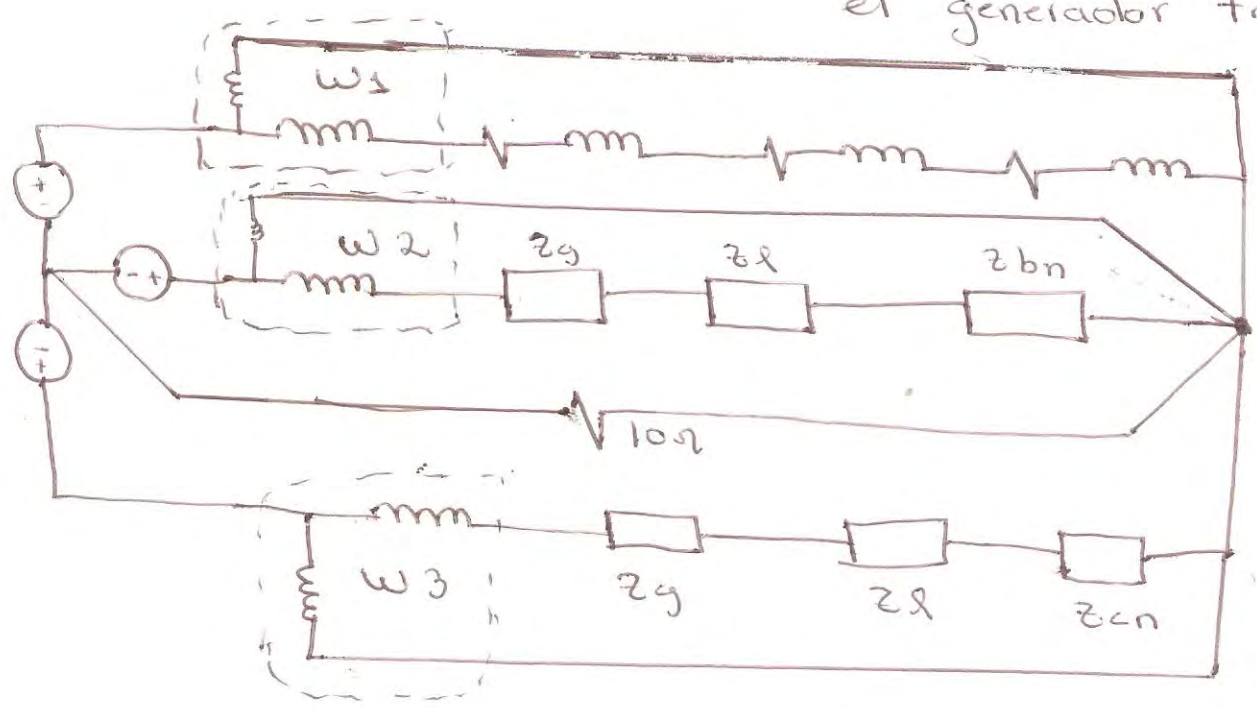 el generador
W1
+
-
W2
- +
Zg
Zl
Zbn
-
+
10Ω
W3
Zg
Zl
Zcn